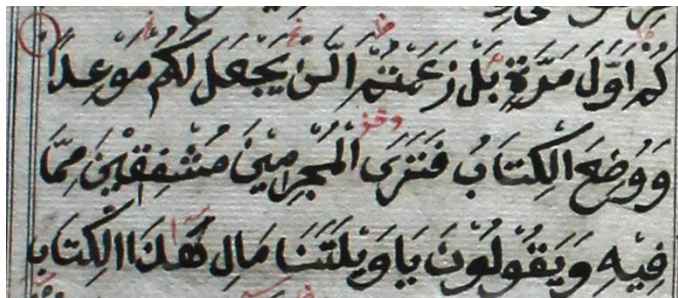 كُمْ اَوَّلَ مَرَّةٍ بَلْ زَعَمْتُمْ اَلَّنْ نَجْعَلَ لَكُمْ مَوْعِدًا
وَوُضِعَ الْكِتَابُ فَتَرَى الْمُجْرِمِينَ مُشْفِقِينَ مِمَّا
فِيهِ وَيَقُولُونَ يَا وَيْلَتَنَا مَالِ هٰذَا الْكِتَابِ